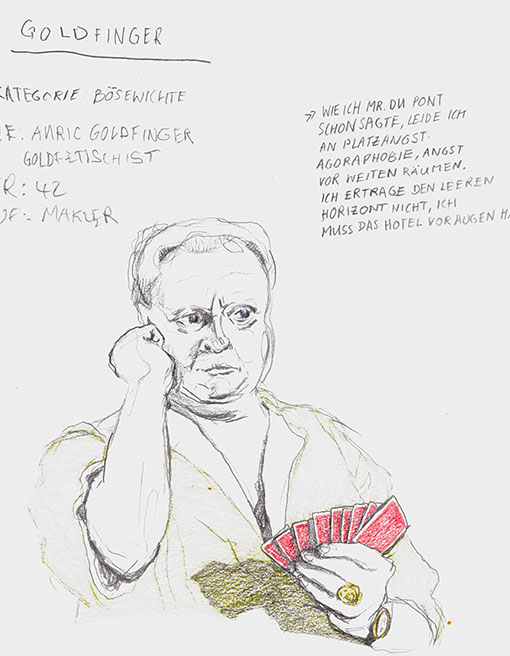 GOLDFINGER
KATEGORIE: BÖSEWICHTE
E: AURIC GOLDFINGER
GOLDFETISCHIST
R: 42
UF: MAKLER
» WIE ICH MR. DU PONT
SCHON SAGTE, LEIDE ICH
AN PLATZANGST.
AGORAPHOBIE, ANGST
VOR WEITEN RÄUMEN.
ICH ERTRAGE DEN LEEREN
HORIZONT NICHT, ICH
MUSS DAS HOTEL VOR AUGEN HA